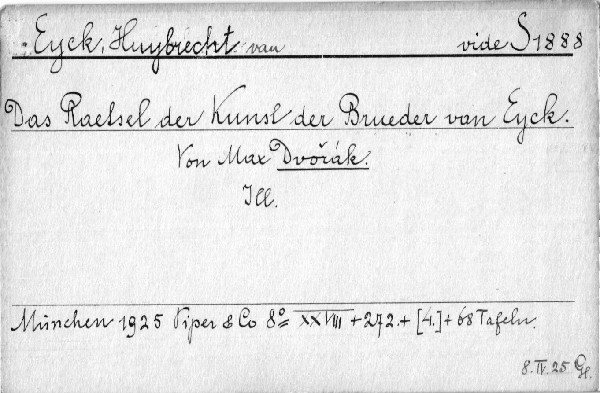 Eyck, Huybrecht van vide S1888
Das Raetsel der Kunst der Brueder van Eyck.
Von Max Dvořák.
Ill.
München 1925 Piper & Co 8° XXVIII + 272. + [4.] + 68 Tafeln.
8.IV.25